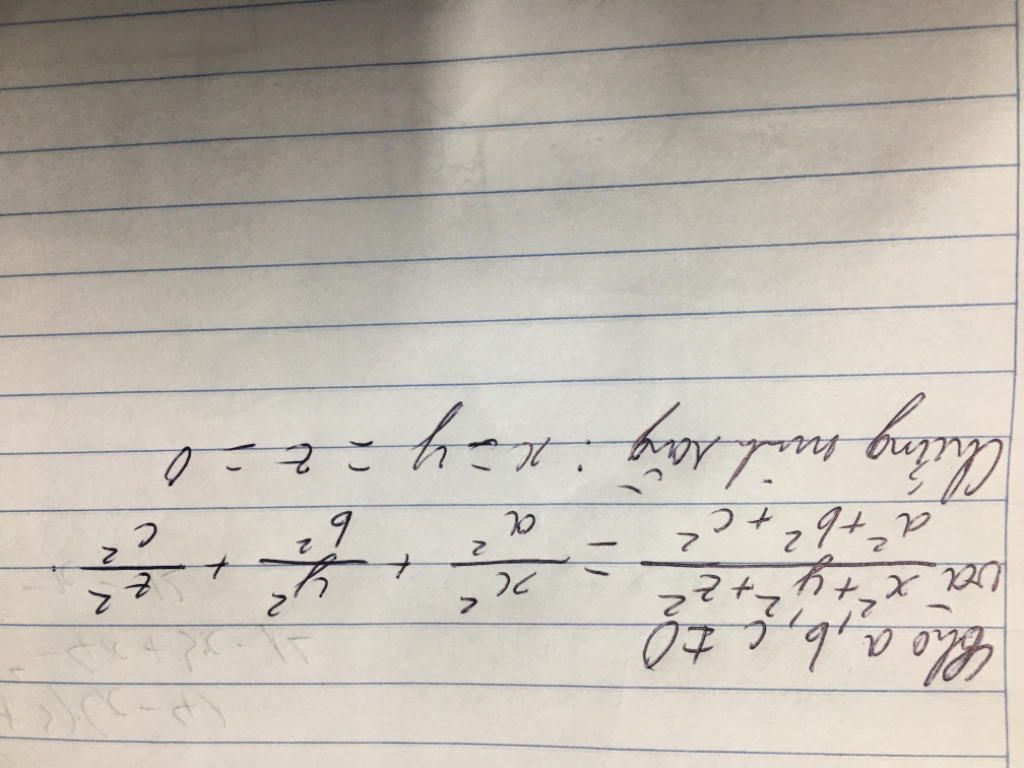 Cho a, b, c ≠ 0
và \frac{x^2+y^2+z^2}{a^2+b^2+c^2} = \frac{x^2}{a^2} + \frac{y^2}{b^2} + \frac{z^2}{c^2}.
Chứng minh rằng : x = y = z = 0